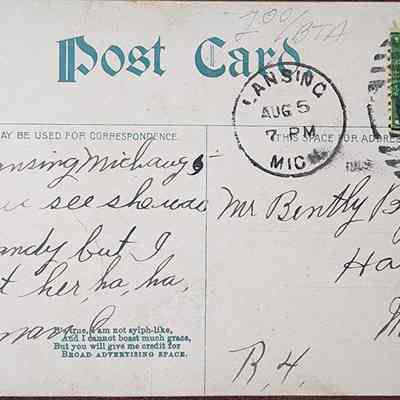 Post Card
LANSING
AUG 5
7 PM
MIC
AY BE USED FOR CORRESPONDENCE.
THIS SPACE FOR ADDRES
ansing Mich aug 5
see she was
andy but I
t her, ha, ha,
'Tis true, I am not sylph-like,
And I cannot boast much grace,
But you will give me credit for
BROAD ADVERTISING SPACE.
Mr Bently B
Ha
M
R. 4.